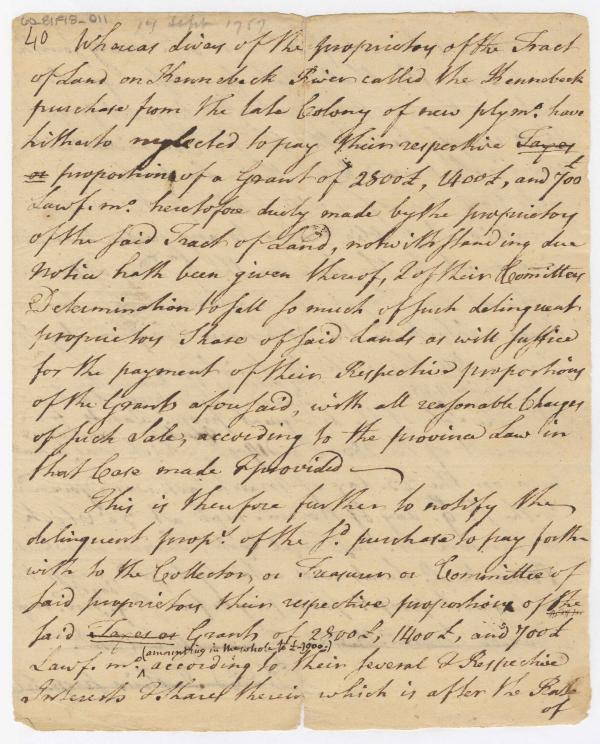 62-81F48-011 14 Sept 1757
40 Whereas divers of the proprietors of the Tract
of Land on Kennebeck River called the Kennebeck
purchase from the late Colony of new plymo. have
hitherto neglected to pay their respective Taxes
or proportions of a Grant of 2800£, 1400£, and 700£
Lawf. mo. heretofore duely made by the proprietors
of the said Tract of Land, notwithstanding due
Notice hath been given thereof, & of their Comittees
Determination to sell so much of such delinquent
proprietors Share of said Lands as will suffice
for the payment of their Respective proportions
of the Grants aforesaid, with all reasonable Charges
of such Sale, according to the province Law in
that Case made & provided
This is therefore further to notify the
delinquent proprs. of the sd. purchase to pay forth
with to the Collector, or Treasurer or Committee of
said proprietors their respective proportions of the
said Taxes or Grants of 2800£, 1400£, and 700£
(amounting in the whole to £4900.)
Lawf. mo. ^ according to their several & Respective
Interests & Shares therein which is after the Rate
of